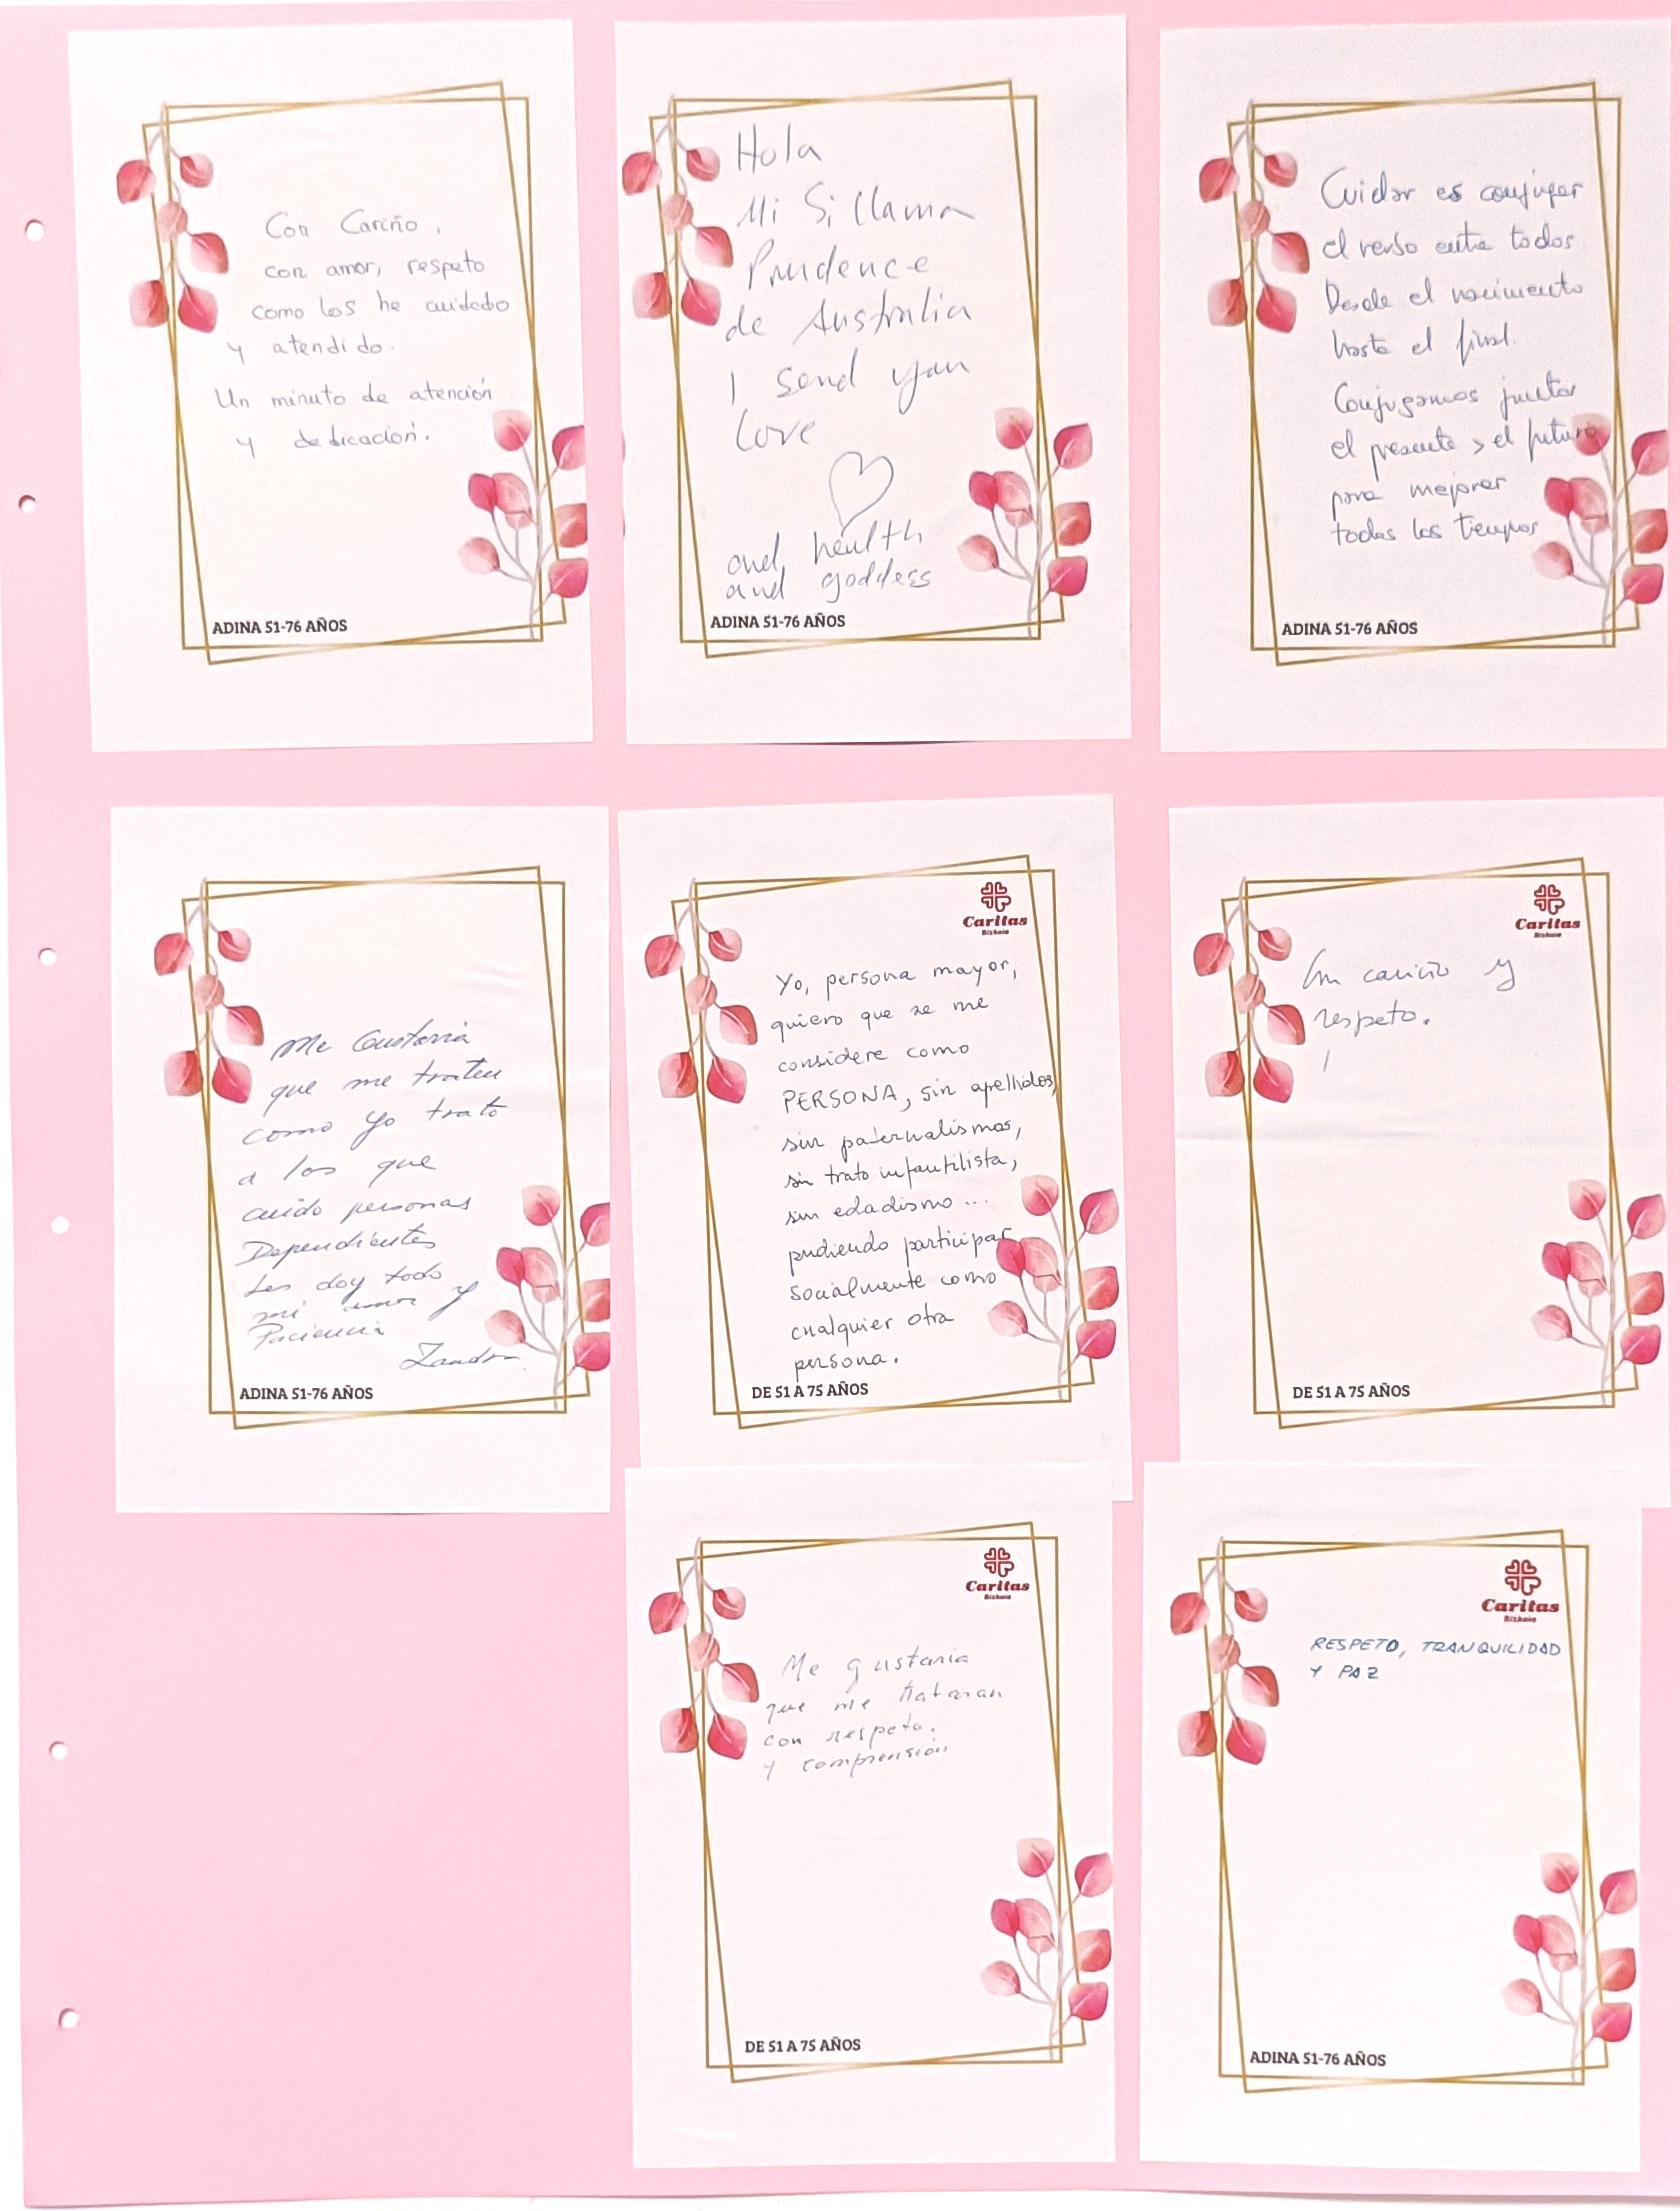 Con Cariño,
con amor, respeto
como los he cuidado
y atendido.
Un minuto de atención
y dedicación.
ADINA 51-76 AÑOS
Hola
Mi Si llama
Prudence
de Australia
I send you
Love
and health
and goddess
ADINA 51-76 AÑOS
Cuidar es conjugar
el verso entre todos
Desde el nacimiento
hasta el final.
Conjugamos juntos
el presente y el futuro
para mejorar
todos los tiempos
ADINA 51-76 AÑOS
Me Gustaria
que me traten
como yo trato
a los que
cuido personas
Dependientes
Les doy todo
mi amor y
Paciencia
Zandra
ADINA 51-76 AÑOS
Caritas
Bizkaia
Yo, persona mayor,
quiero que se me
considere como
PERSONA, sin apellidos,
sin paternalismos,
sin trato infantilista,
sin edadismo...
pudiendo participar
socialmente como
cualquier otra
persona.
DE 51 A 75 AÑOS
Caritas
Bizkaia
cariño y
respeto.
DE 51 A 75 AÑOS
Caritas
Bizkaia
Me gustaria
que me trataran
con respeto.
y comprensión
DE 51 A 75 AÑOS
Caritas
Bizkaia
RESPETO, TRANQUILIDAD
Y PAZ
ADINA 51-76 AÑOS